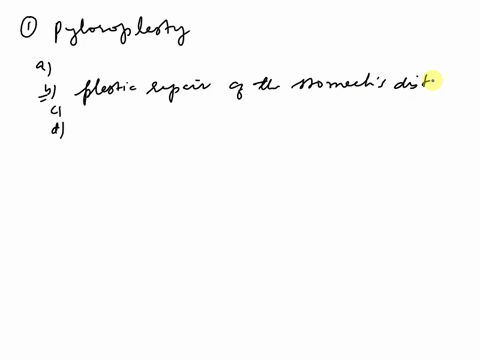 ① Pyloroplasty
a)
b) plastic repair of the stomach's dist
c)
d)